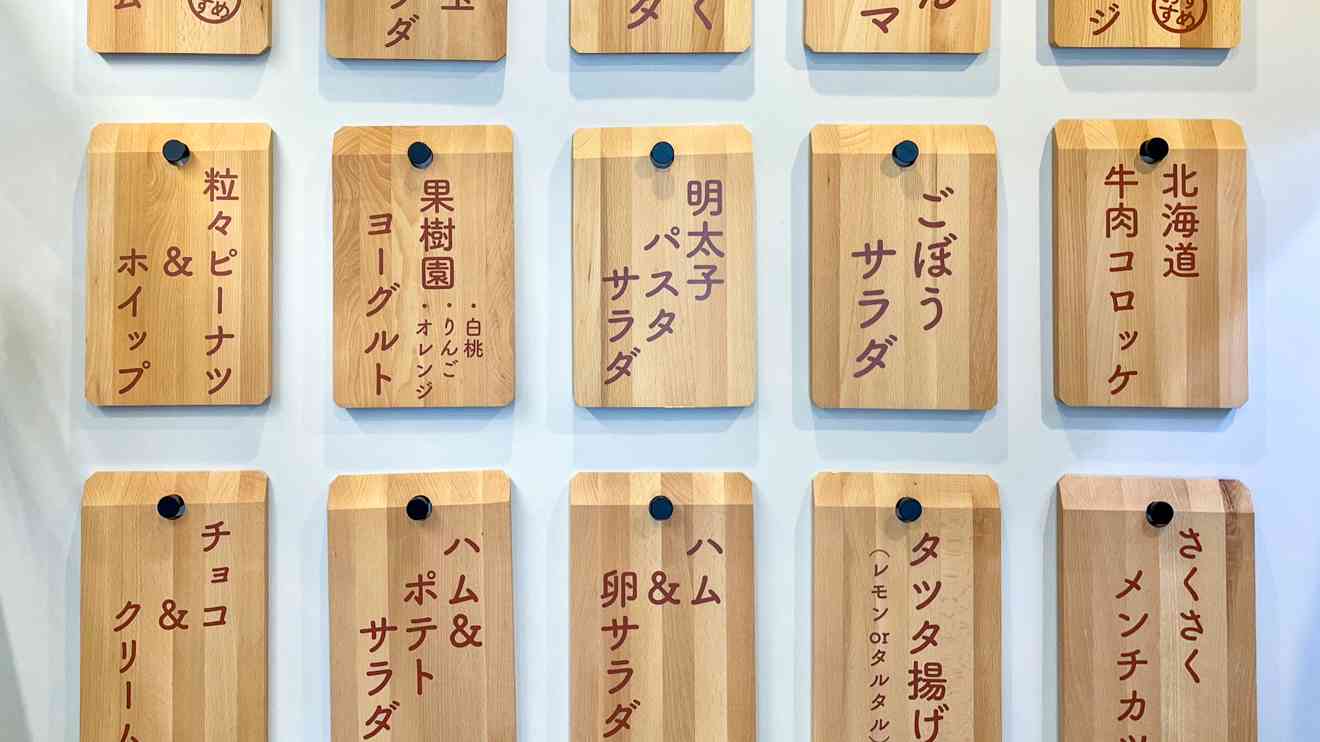 ジ
すめ
おす
ル
マ
く
ダ
玉
ラダ
すめ
ム
北海道
牛肉コロッケ
ごぼう
サラダ
明太子
パスタ
サラダ
果樹園
・白桃
・りんご
・オレンジ
ヨーグルト
粒々ピーナツ
&
ホイップ
さくさく
メンチカツ
タッタ揚げ
(レモンorタルタル)
ハム&
ポテト
サラダ
ハム
&
卵サラダ
チョコ
&
クリーム